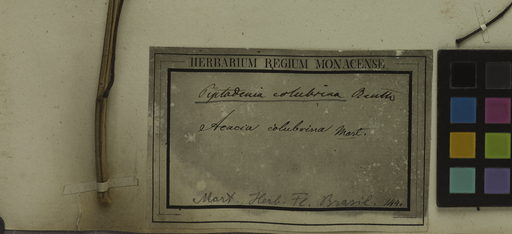 HERBARIUM REGIUM MONACENSE
Piptadenia colubrina Benth
Acacia colubrina Mart.
Mart. Herb. Fl. Brasil.